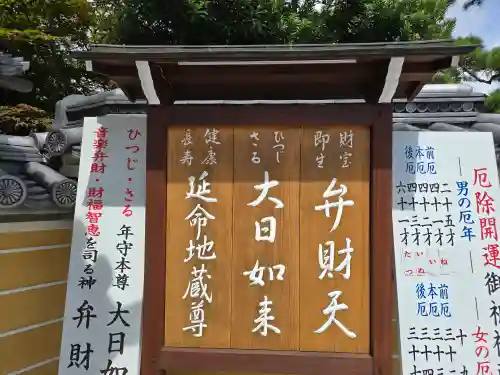 厄除開運 御祈
男の厄年
前厄 本厄 後厄
二十五才
四十二才
四十三才
六十一才
女の厄
前厄 本厄 後厄
財宝
即生
弁財天
ひつじ
さる
大日如来
健康
長寿
延命地蔵尊
ひつじ・さる年守本尊 大日如
音楽弁財・財福智恵を司る神 弁財